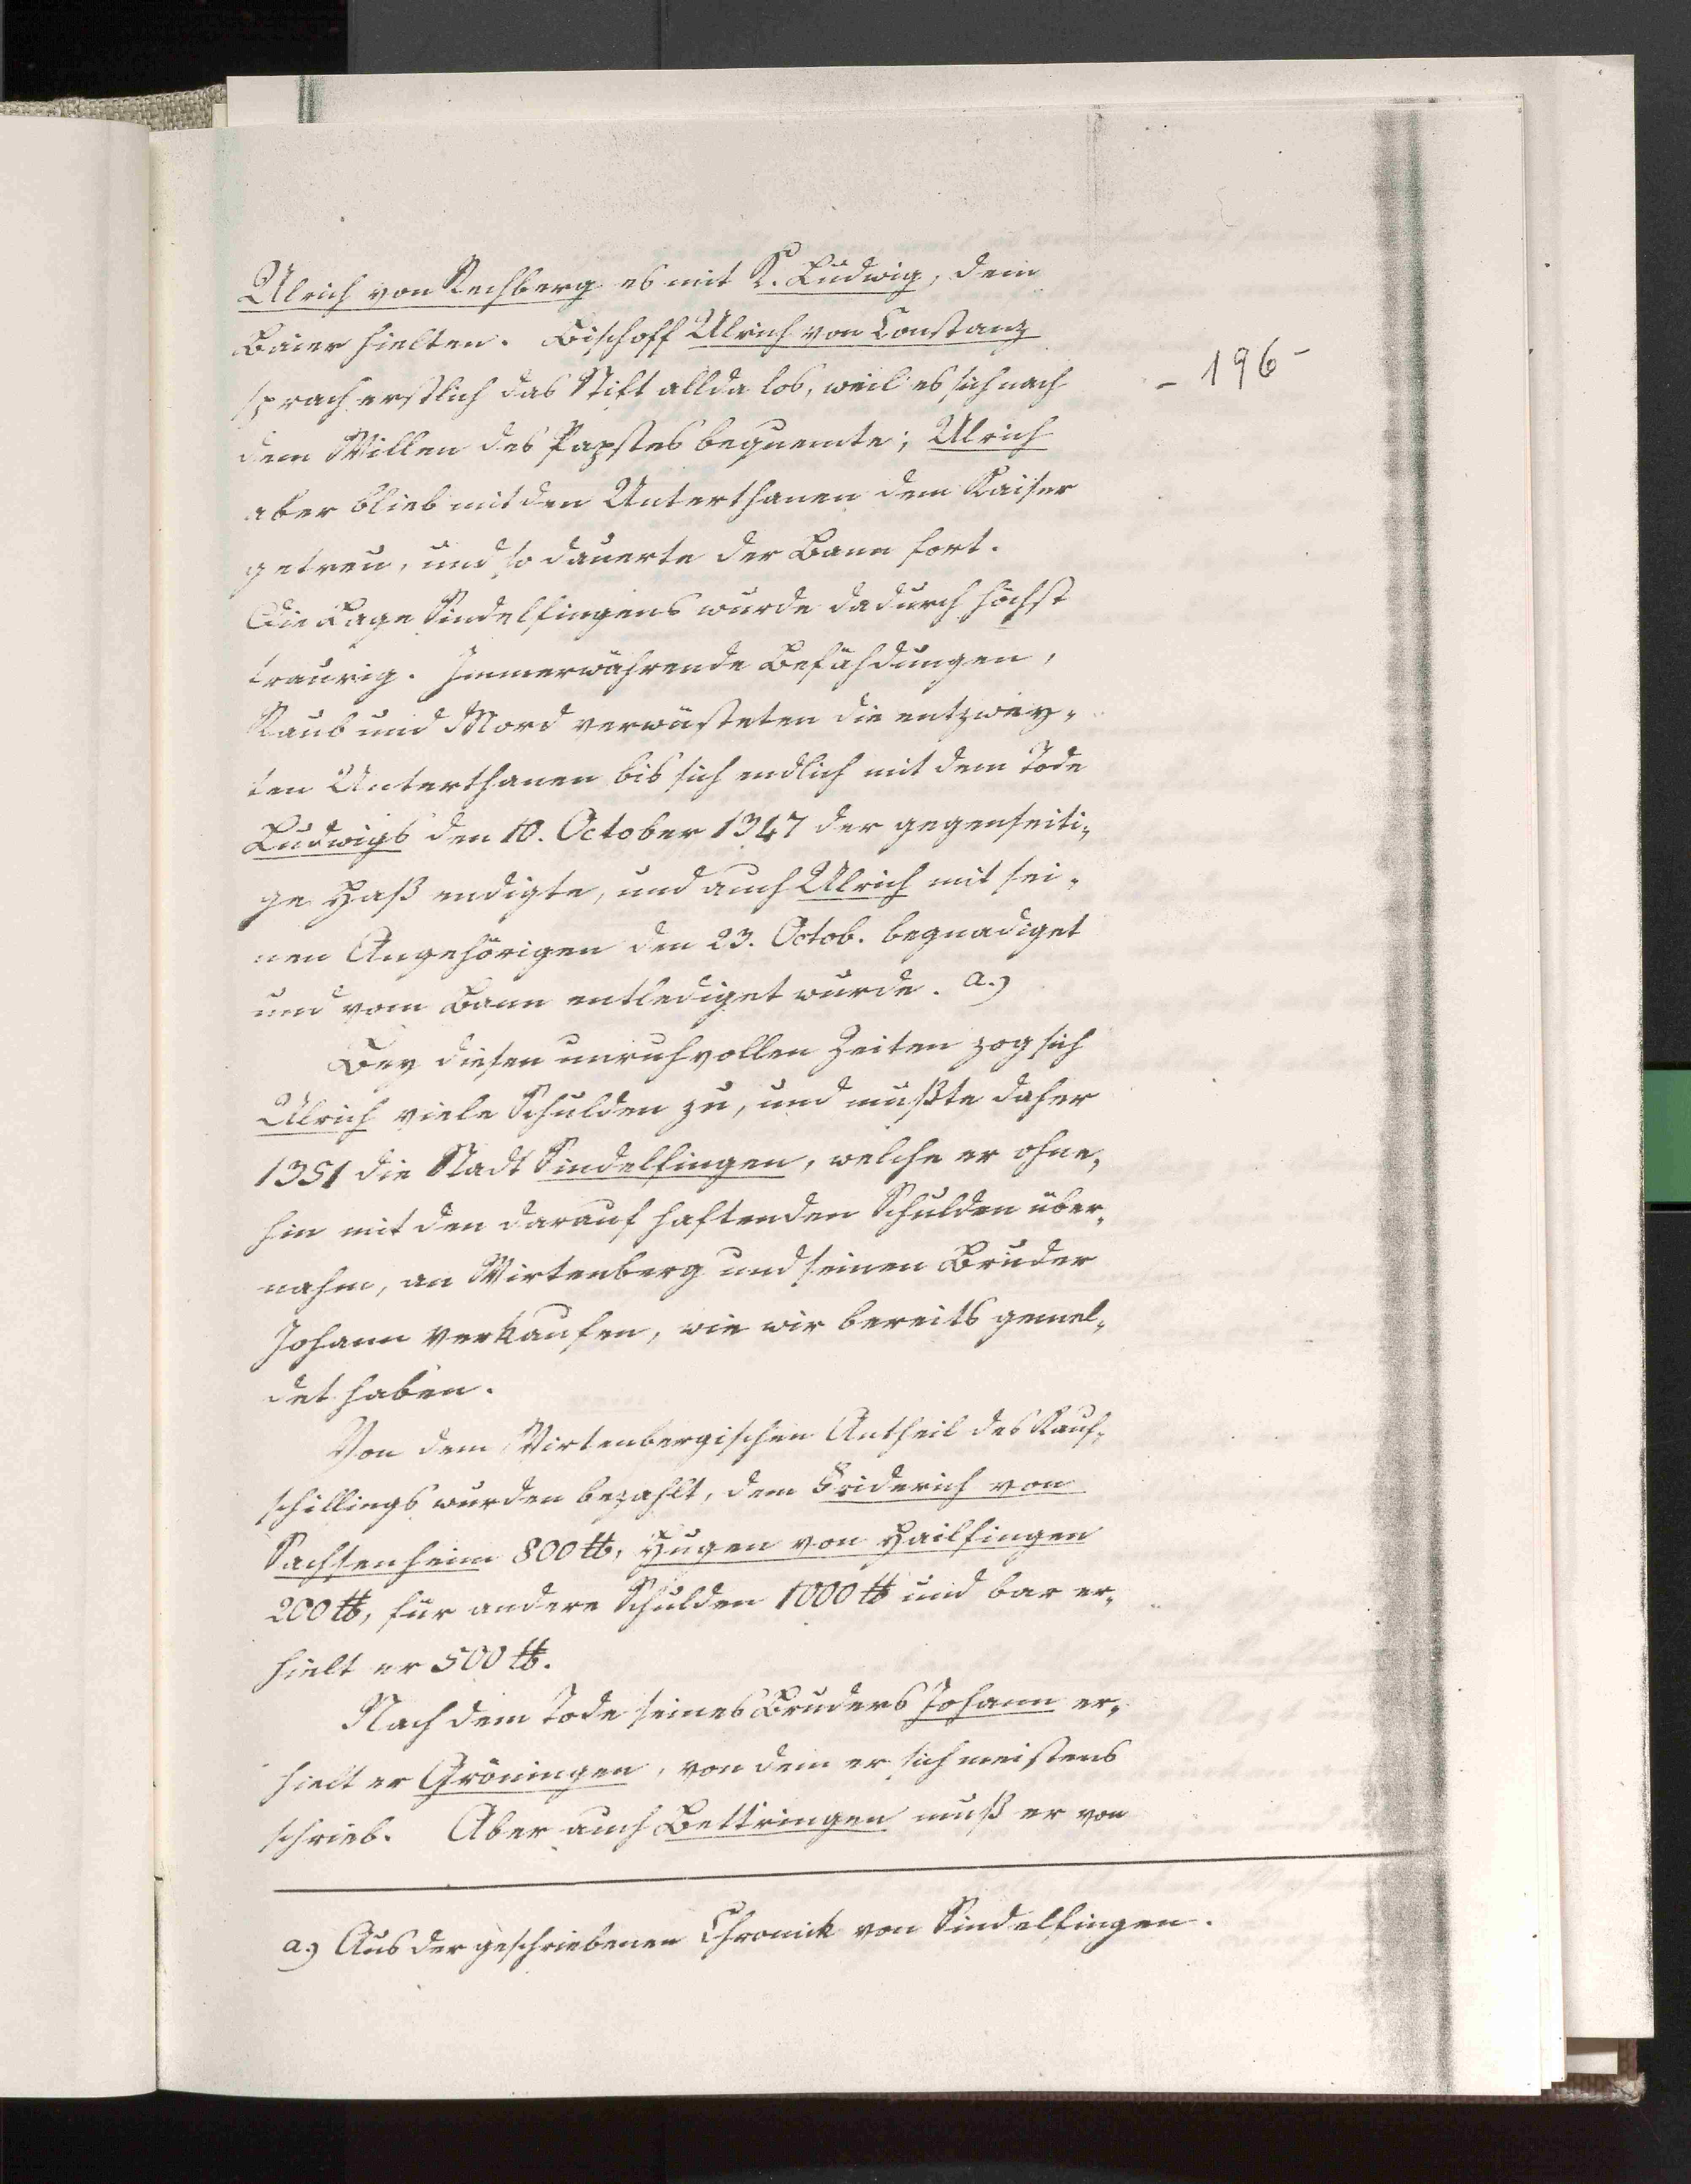 Ulrich von Rechberg es mit K. Ludwig, dem
Baier hielten. Bischoff Ulrich von Constanz
sprach erstlich das Stift allda los, weil es sich nach
- 196 -
dem Willen des Papstes bequemte; Ulrich
aber blieb mit den Unterthanen dem Kaiser
getreu, und so dauerte der Bann fort.
Die Lage Sindelfingens wurde dadurch höchst
traurig. Immerwährende Befähdungen,
Raub und Mord verwüsteten die entzwey-
ten Unterthanen bis sich endlich mit dem Tode
Ludwigs den 10. October 1347 der gegenseiti-
ge Haß endigte, und auch Ulrich mit sei-
nen Angehörigen den 23. Octob. begnadiget
und vom Bann entlediget wurde. a.)
Bey diesen unruhvollen Zeiten zog sich
Ulrich viele Schulden zu, und mußte daher
1351 die Stadt Sindelfingen, welche er ohne-
hin mit den darauf haftenden Schulden über-
nahm, an Wirtenberg und seinen Bruder
Johann verkaufen, wie wir bereits gemel-
det haben.
Von dem Wirtenbergischen Antheil des Kauf-
schillings wurden bezahlt, dem Friderich von
Sachsenheim 800 ℔, Hugen von Hailfingen
200 ℔, für andere Schulden 1000 ℔ und bar er-
hielt er 500 ℔.
Nach dem Tode seines Bruders Johann er-
hielt er Gröningen, von dem er sich meistens
schrieb. Aber auch Bettringen muß er von
a.) Aus der geschriebenen Chronik von Sindelfingen.